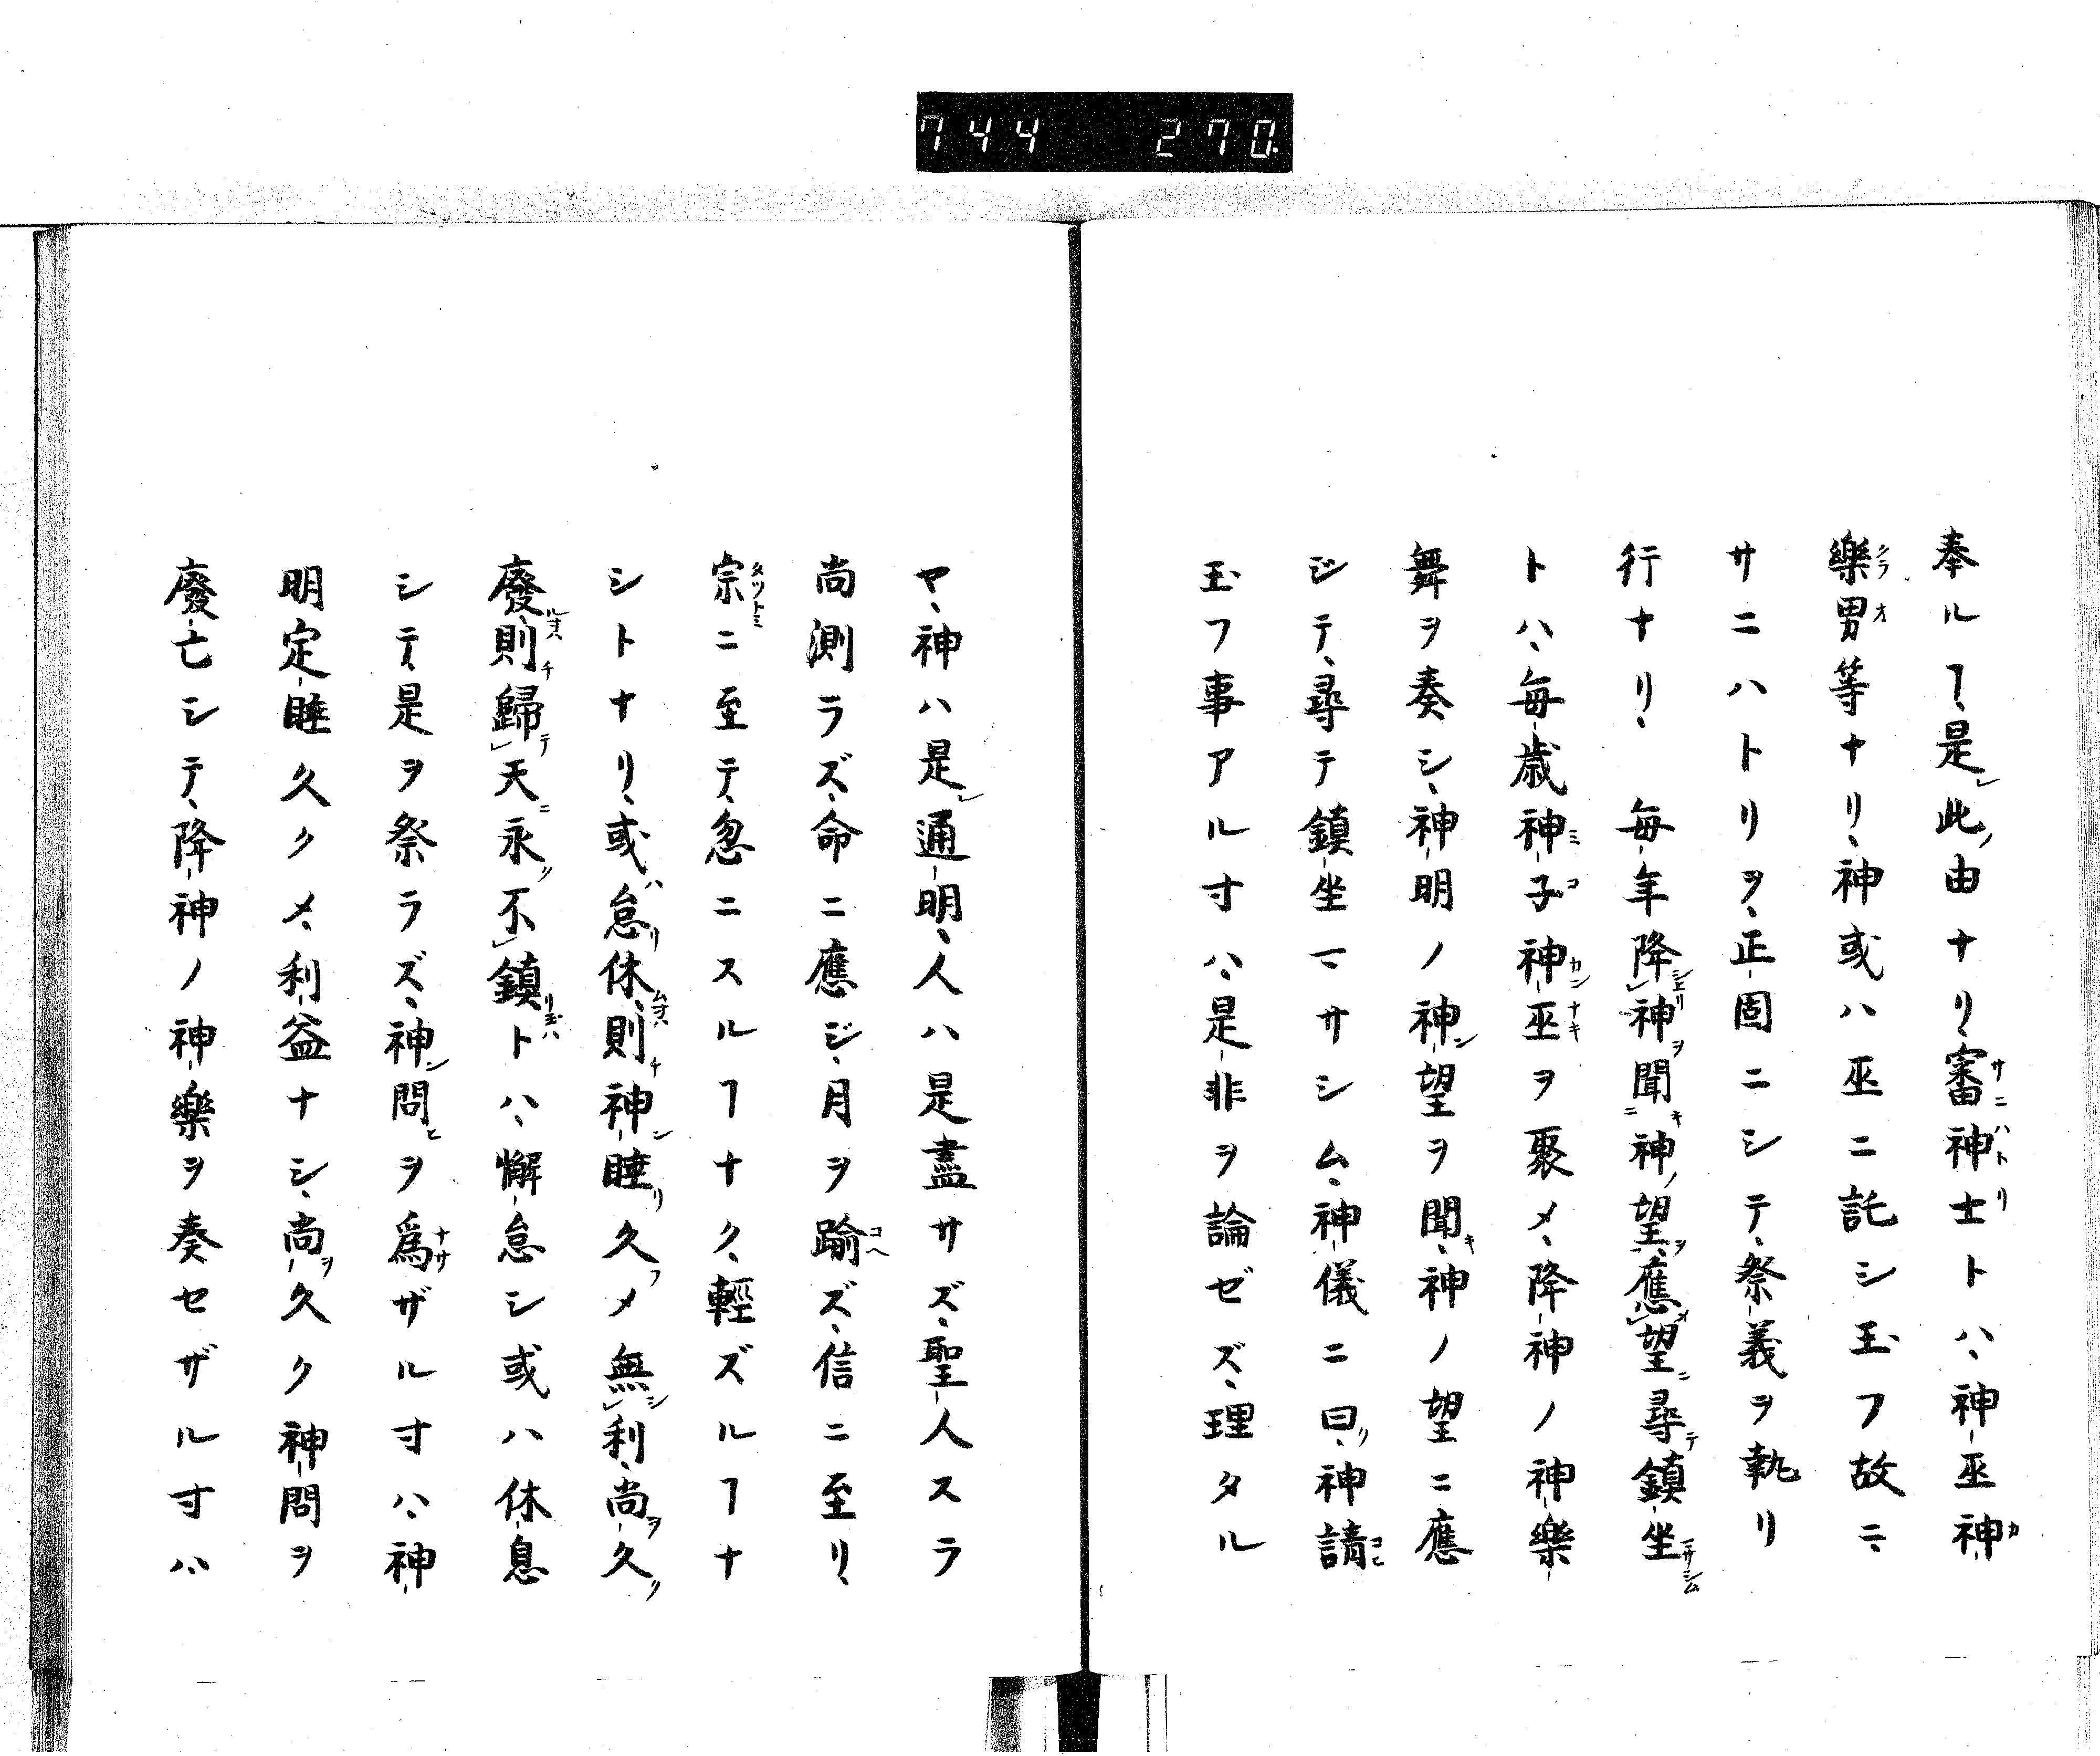 744 270
奉ルヿ、是レ此ノ由ナリ、審神士トハ、神巫神
樂男等ナリ、神或ハ巫ニ託シ玉フ故ニ、
サニハトリヲ、正固ニシテ、祭義ヲ執リ
行ナリ、 毎年降神聞神ノ望應望尋鎮坐
トハ、毎歳神子神巫ヲ聚メ、降神ノ神樂
舞ヲ奏シ、神明ノ神望ヲ聞キ、神ノ望ニ應
ジテ、尋テ鎮坐マサシム、神儀ニ曰ク、神請
玉フ事アル寸ハ、是非ヲ論ゼズ、理タル
ヤ、神ハ是レ通明、人ハ是盡サズ、聖人スラ
尚測ラズ、命ニ應ジ、月ヲ踰ズ、信ニ至リ、
宗ニ至テ、忽ニスルヿナク、輕ズルヿナ
シトナリ、或ハ怠リ休、則チ神睡リ久フメ無シ利、尚ヲ久ク
廢、則チ歸テ天ニ永ク不鎮トハ、懈怠シ或ハ休息
シテ、是ヲ祭ラズ、神問ヒヲ爲ザル寸ハ、神
明定睡久クメ、利益ナシ、尚ヲ久ク神問ヲ
廢亡シテ、降神ノ神樂ヲ奏セザル寸ハ